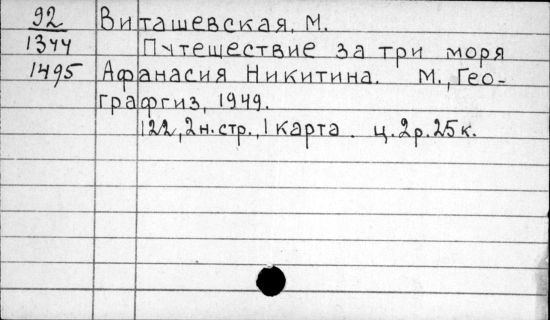 92
1344
1495
Виташевская, М.
Путешествие за три моря
Афанасия Никитина. М., Гео-
графгиз, 1949.
122, 2н.стр., 1 карта. ц.2р.25к.